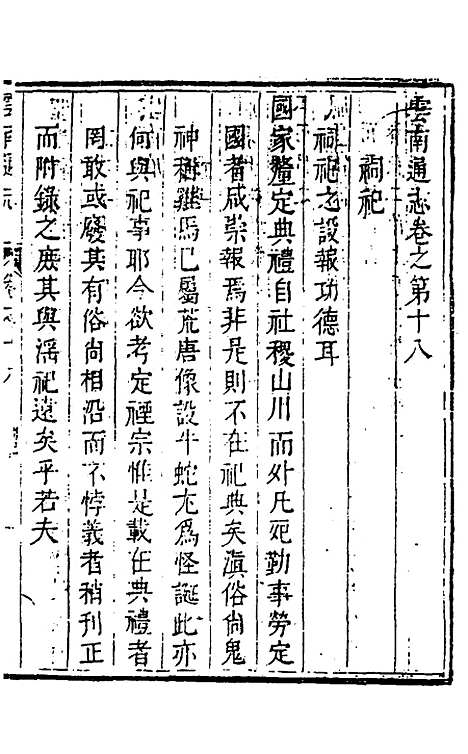 雲南通志卷之第十八
祠祀
祠祀之設報功德耳
國家釐定典禮自社稷山川而外凡死勤事勞定
國者咸崇報焉非是則不在祀典矣滇俗尚鬼
神稱雞馬已屬荒唐像設牛蛇尤爲怪誕此亦
何與祀事耶今欲考定禋宗惟是載在典禮者
罔敢或廢其有俗尚相沿而不悖義者稍刊正
而附錄之庶其與淫祀遠矣乎若夫